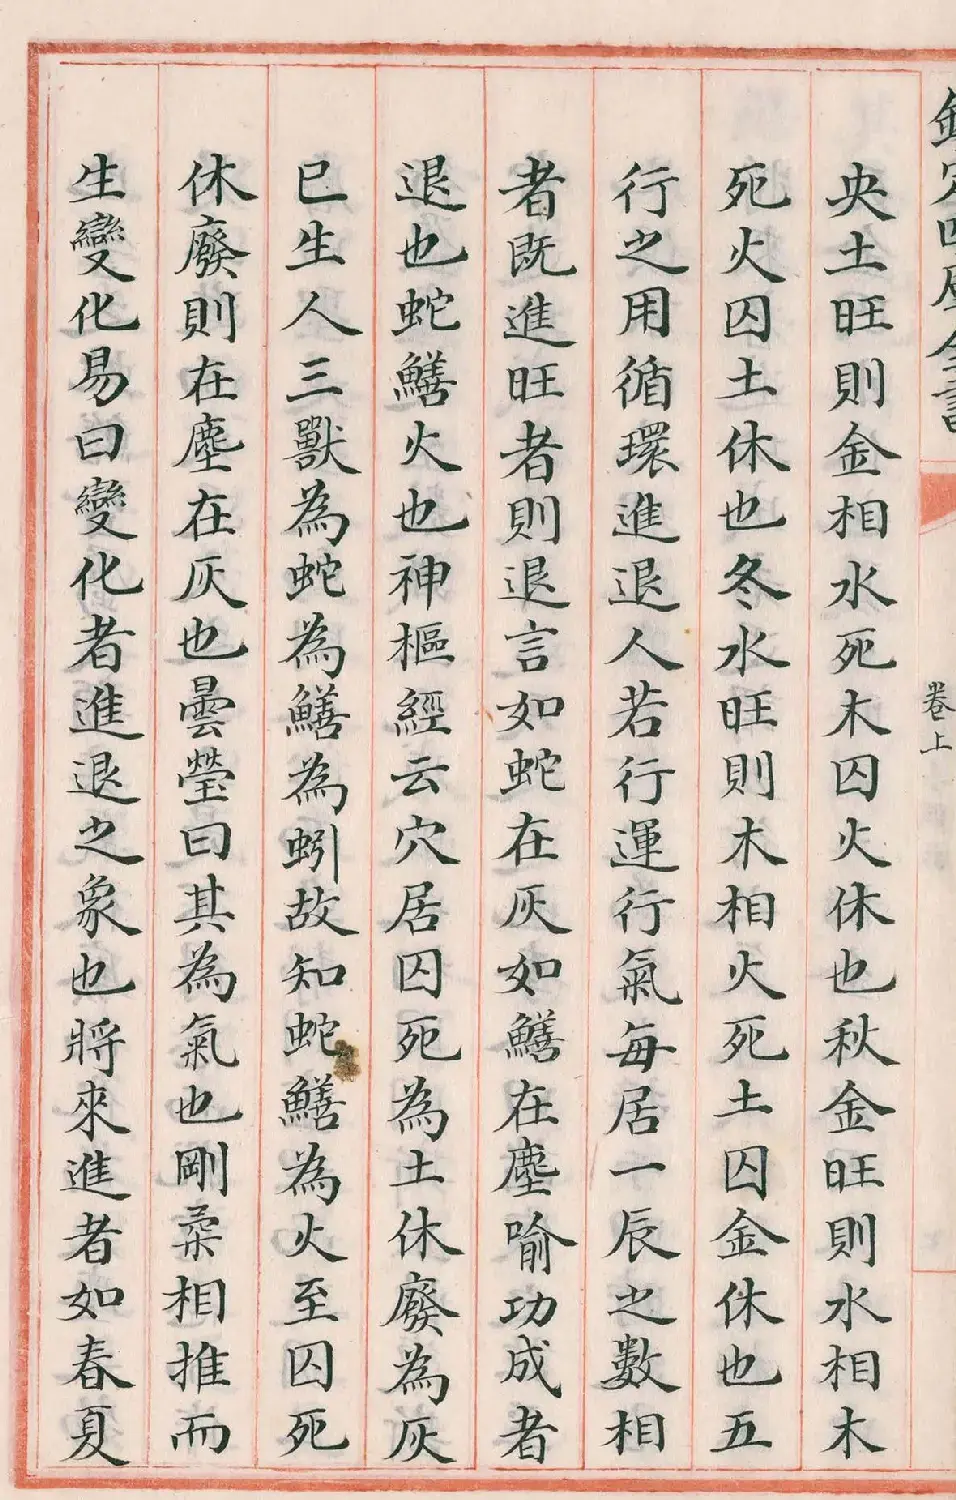 欽定四庫全書
卷上
央土旺則金相水死木囚火休也秋金旺則水相木
死火囚土休也冬水旺則木相火死土囚金休也五
行之用循環進退人若行運行氣每居一辰之數相
者既進旺者則退言如蛇在灰如鱔在塵喻功成者
退也蛇鱔火也神樞經云穴居囚死為土休廢為灰
巳生人三獸為蛇為鱔為蚓故知蛇鱔為火至囚死
休廢則在塵在灰也曇瑩曰其為氣也剛柔相推而
生變化易曰變化者進退之象也將來進者如春夏